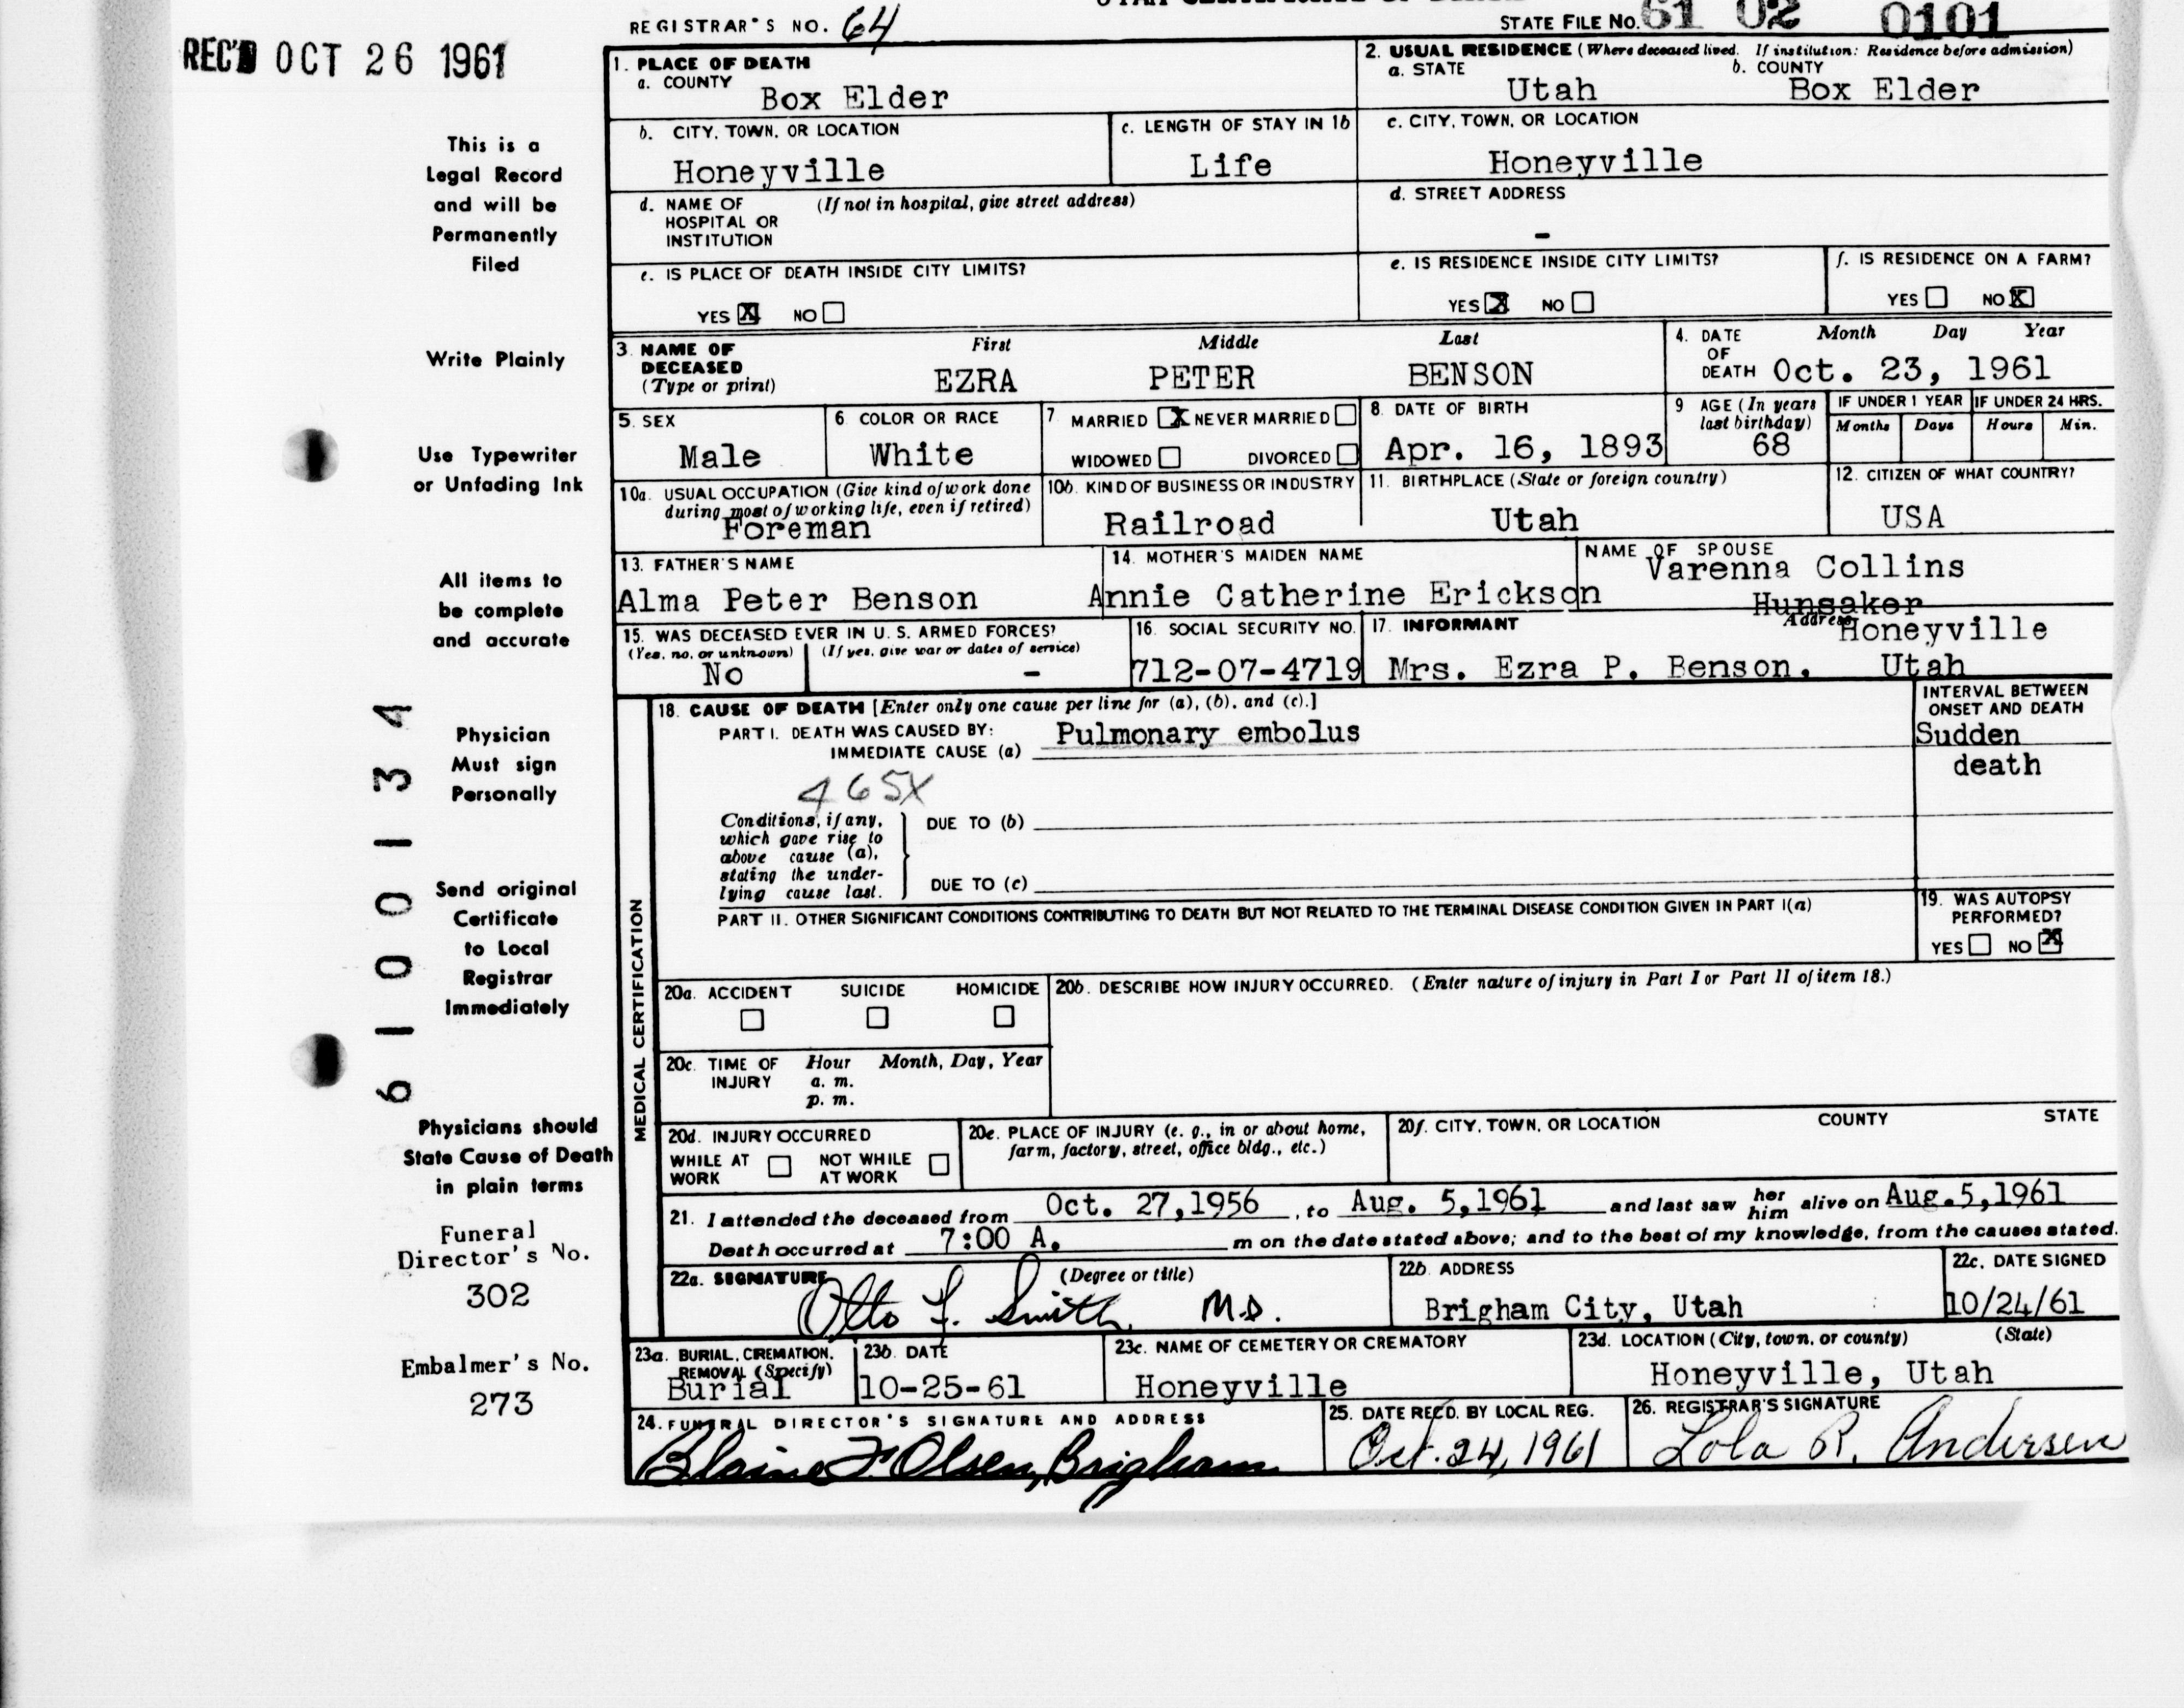 REGISTRAR'S NO. 64
STATE FILE NO. 61 02 0101
REC'D OCT 26 1961
This is a
Legal Record
and will be
Permanently
Filed
Write Plainly
Use Typewriter
or Unfading Ink
All items to
be complete
and accurate
Physician
Must sign
Personally
Send original
Certificate
to Local
Registrar
Immediately
Physicians should
State Cause of Death
in plain terms
Funeral
Director's No.
302
Embalmer's No.
273
6100134
1. PLACE OF DEATH
a. COUNTY
Box Elder
2. USUAL RESIDENCE (Where deceased lived. If institution: Residence before admission)
a. STATE b. COUNTY
Utah Box Elder
b. CITY, TOWN, OR LOCATION
Honeyville
c. LENGTH OF STAY IN 1b
Life
c. CITY, TOWN, OR LOCATION
Honeyville
d. NAME OF (If not in hospital, give street address)
HOSPITAL OR
INSTITUTION
d. STREET ADDRESS
-
e. IS PLACE OF DEATH INSIDE CITY LIMITS?
YES X NO
e. IS RESIDENCE INSIDE CITY LIMITS?
YES X NO
f. IS RESIDENCE ON A FARM?
YES NO X
3. NAME OF
DECEASED
(Type or print)
First Middle Last
EZRA PETER BENSON
4. DATE Month Day Year
OF
DEATH Oct. 23, 1961
5. SEX
Male
6 COLOR OR RACE
White
7 MARRIED X NEVER MARRIED
WIDOWED DIVORCED
8. DATE OF BIRTH
Apr. 16, 1893
9 AGE (In years
last birthday)
68
IF UNDER 1 YEAR IF UNDER 24 HRS.
Months Days Hours Min.
10a. USUAL OCCUPATION (Give kind of work done
during most of working life, even if retired)
Foreman
10b. KIND OF BUSINESS OR INDUSTRY
Railroad
11. BIRTHPLACE (State or foreign country)
Utah
12. CITIZEN OF WHAT COUNTRY?
USA
13. FATHER'S NAME
Alma Peter Benson
14. MOTHER'S MAIDEN NAME
Annie Catherine Erickson
NAME OF SPOUSE
Varenna Collins
Hunsaker
15. WAS DECEASED EVER IN U. S. ARMED FORCES?
(Yes, no, or unknown) (If yes, give war or dates of service)
No -
16. SOCIAL SECURITY NO.
712-07-4719
17. INFORMANT Address
Honeyville
Mrs. Ezra P. Benson, Utah
MEDICAL CERTIFICATION
18. CAUSE OF DEATH [Enter only one cause per line for (a), (b), and (c).]
PART I. DEATH WAS CAUSED BY:
IMMEDIATE CAUSE (a) Pulmonary embolus
INTERVAL BETWEEN
ONSET AND DEATH
Sudden
death
465X
Conditions, if any,
which gave rise to
above cause (a),
stating the under-
lying cause last.
DUE TO (b)
DUE TO (c)
PART II. OTHER SIGNIFICANT CONDITIONS CONTRIBUTING TO DEATH BUT NOT RELATED TO THE TERMINAL DISEASE CONDITION GIVEN IN PART I(a)
19. WAS AUTOPSY
PERFORMED?
YES NO X
20a. ACCIDENT SUICIDE HOMICIDE
20b. DESCRIBE HOW INJURY OCCURRED. (Enter nature of injury in Part I or Part II of item 18.)
20c. TIME OF Hour Month, Day, Year
INJURY a. m.
p. m.
20d. INJURY OCCURRED
WHILE AT NOT WHILE
WORK AT WORK
20e. PLACE OF INJURY (e. g., in or about home,
farm, factory, street, office bldg., etc.)
20f. CITY, TOWN, OR LOCATION COUNTY STATE
21. I attended the deceased from Oct. 27, 1956, to Aug. 5, 1961 and last saw her him alive on Aug. 5, 1961
Death occurred at 7:00 A. m on the date stated above; and to the best of my knowledge, from the causes stated.
22a. SIGNATURE (Degree or title)
Otto F. Smith M.D.
22b. ADDRESS
Brigham City, Utah
22c. DATE SIGNED
10/24/61
23a. BURIAL, CREMATION,
REMOVAL (Specify)
Burial
23b. DATE
10-25-61
23c. NAME OF CEMETERY OR CREMATORY
Honeyville
23d. LOCATION (City, town, or county) (State)
Honeyville, Utah
24. FUNERAL DIRECTOR'S SIGNATURE AND ADDRESS
Blaine F. Olsen, Brigham
25. DATE RECD. BY LOCAL REG.
Oct. 24, 1961
26. REGISTRAR'S SIGNATURE
Lola R. Andersen